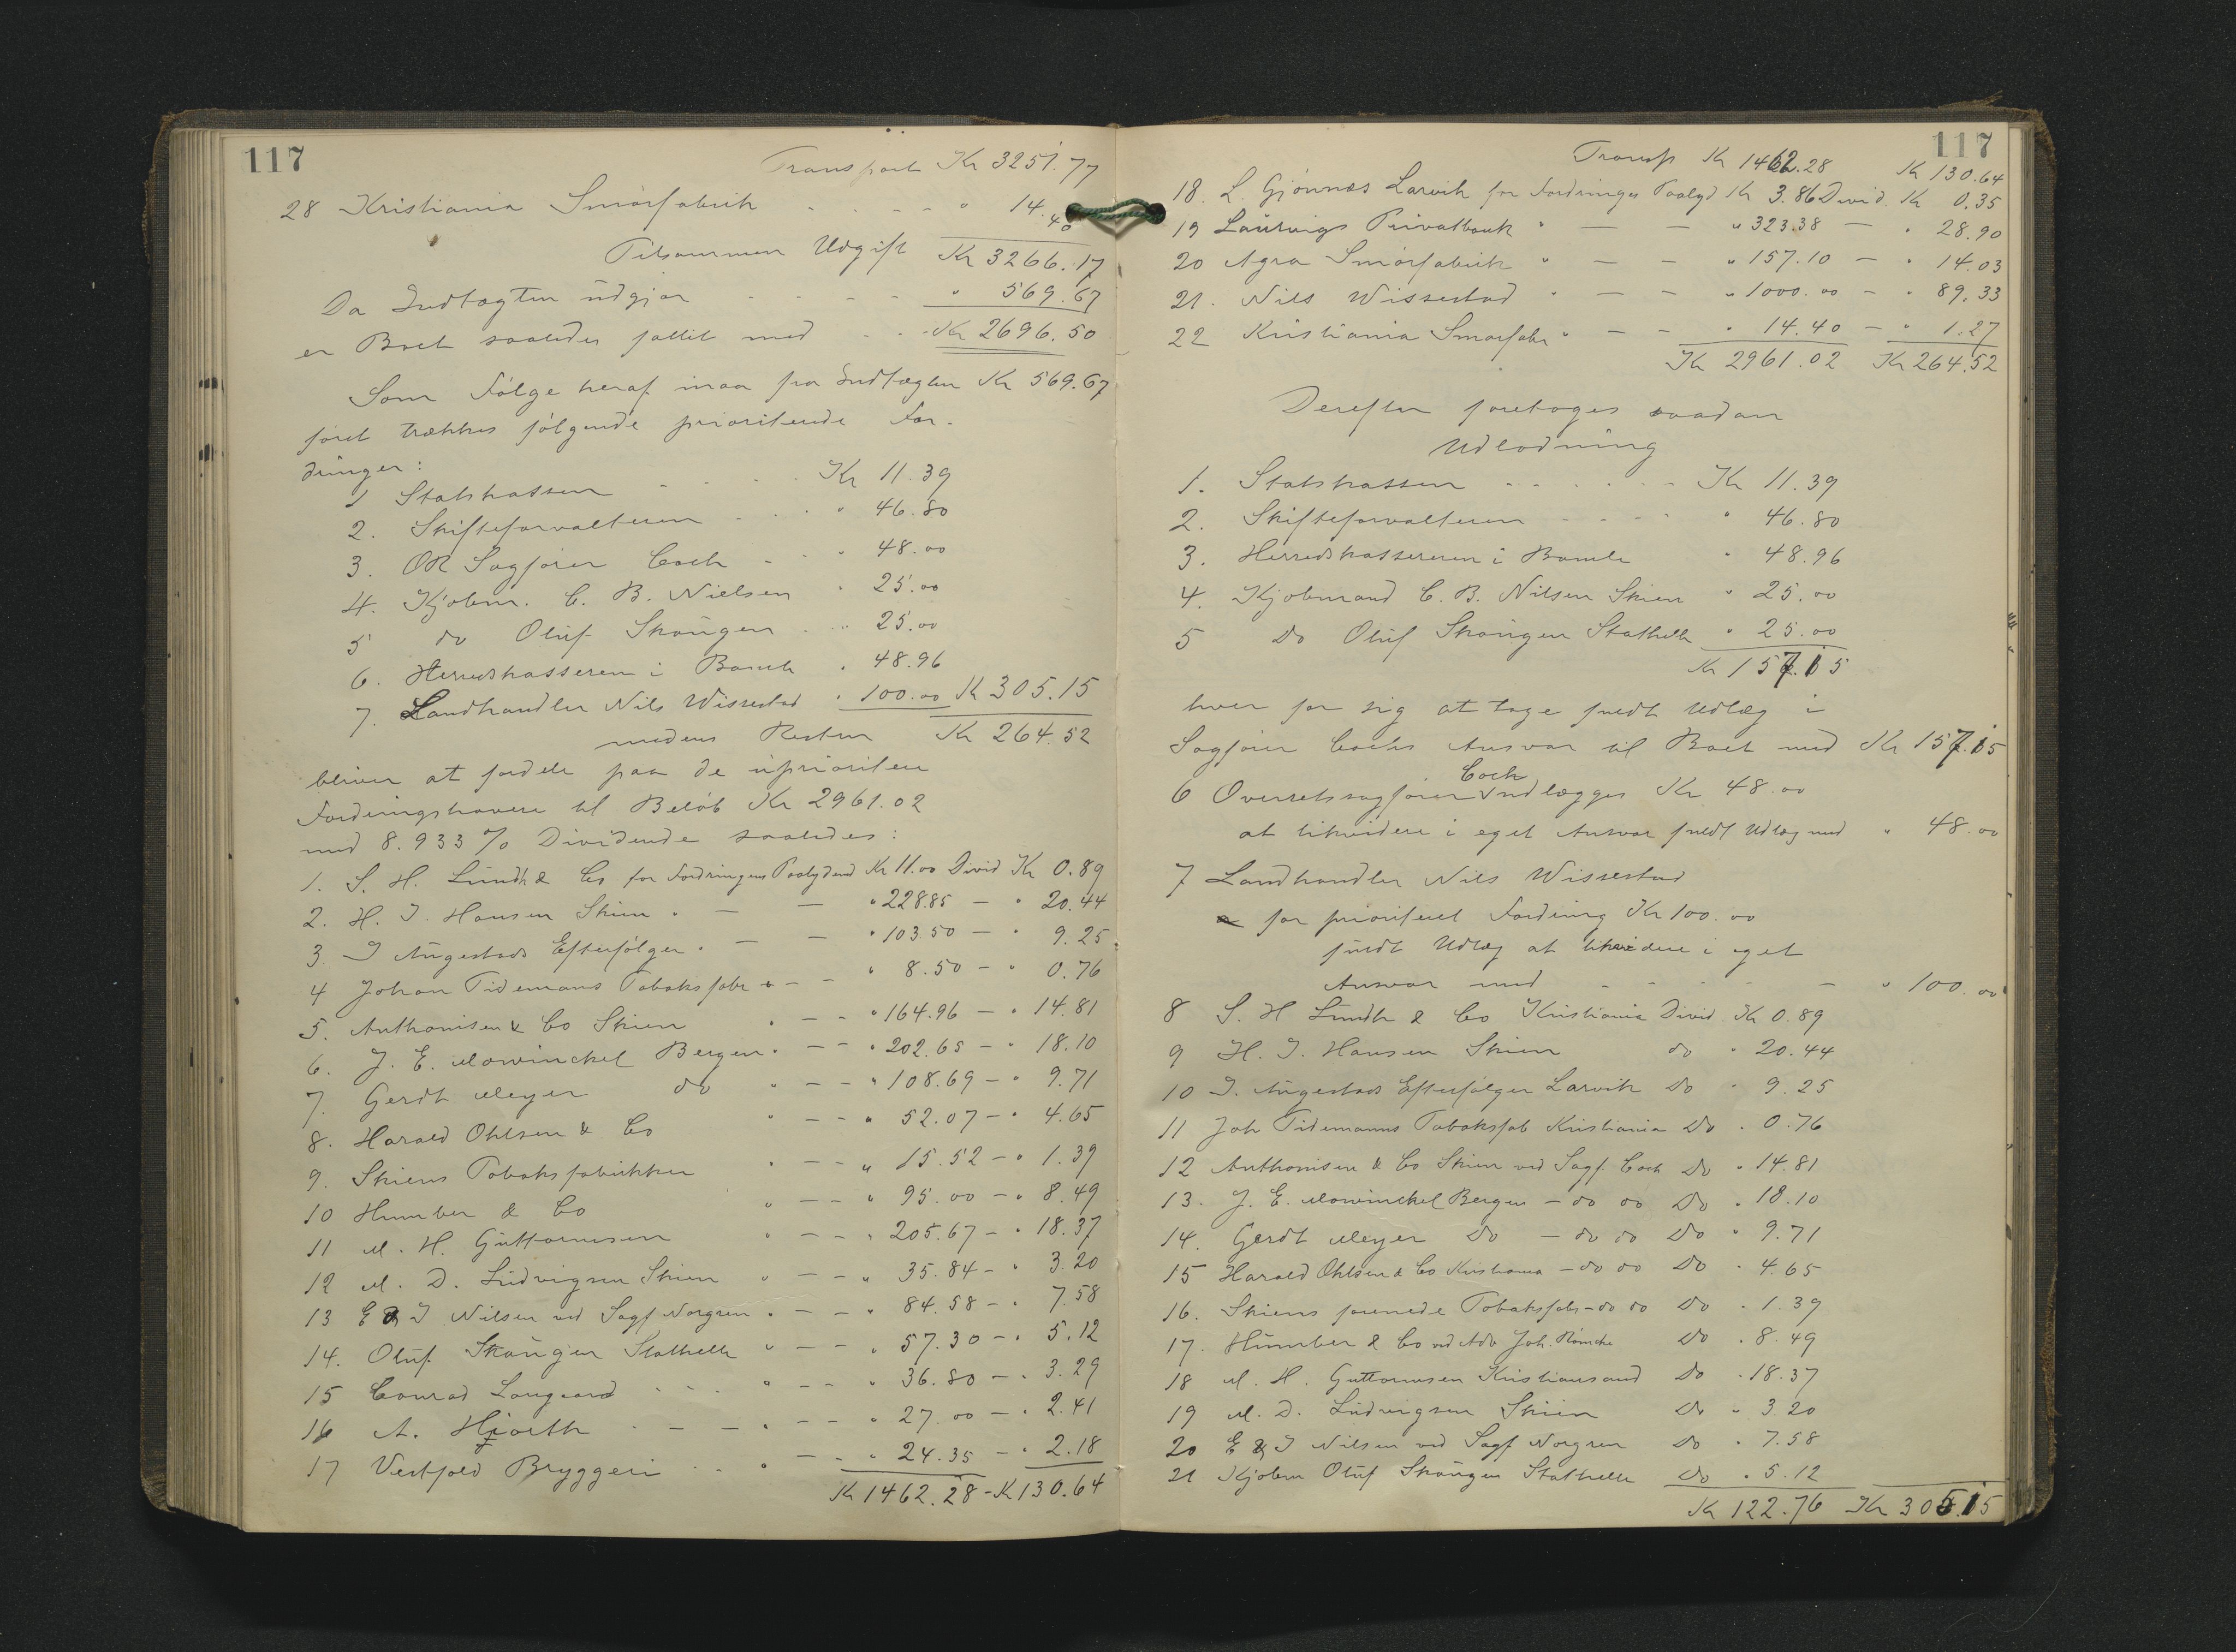 117
Transport Kr 3251.77
28 Kristiania Smörfabrik - - - - " 14.40
Tilsammen Udgift Kr 3266.17
Da Indtægten udgjør - - - - " 569.67
er Boet saaledes fallit med - - Kr 2696.50
Som Følge heraf maa fra Indtægten Kr 569.67
først trækkes følgende prioriterede For-
dringer:
1 Statskassen - - - - Kr 11.39
2. Skifteforvalteren - - - " 46.80
3. OR Sagfører Coch - - " 48.00
4. Kjøbm. C. B. Nielsen " 25.00
5 do Oluf Skougen - " 25.00
6. Herredskasseren i Bamle " 48.96
7. Landhandler Nils Wissestad " 100.00 Kr 305.15
medens Resten Kr 264.52
bliver at fordele paa de uprioritere
Fordringshavere til Beløb Kr 2961.02
med 8.933 % Dividende saaledes:
1. S. H. Lundh & Co for Fordringens Paalydend Kr 11.00 Divid Kr 0.89
2. H. J. Hansen Skien " — — " 228.85 — " 20.44
3. J Augestads Efterfølger " — — " 103.50 — " 9.25
4 Johan Tidemans Tobaksfabr " - - " 8.50 - " 0.76
5. Anthonisen & Co Skien " - - " 164.96 — " 14.81
6. J. E. Mowinckel Bergen " - - " 202.65 - " 18.10
7. Gerdt Meyer do " - - " 108.69 - " 9.71
8. Harald Ohlsen & Co " - - " 52.07 - " 4.65
9. Skiens Tobaksfabrikker " - - " 15.52 - " 1.39
10 Humber & Co " - - " 95.00 - " 8.49
11 M. H. Guttormsen " - - " 205.67 - " 18.37
12 M. D. Ludvigsen Skien " - - " 35.84 - " 3.20
13 E & J Nilsen ved Sagf Norgren " - - " 84.58 - " 7.58
14. Oluf Skougen Stathelle " - - " 57.30 - " 5.12
15 Conrad Langaard - - - " - - " 36.80 - " 3.29
16 A. Hjorth - - - " - - " 27.00 - " 2.41
17 Vestfold Bryggeri - - " - - " 24.35 - " 2.18
Kr 1462.28 - Kr 130.64
117
Transp Kr 1462.28 Kr 130.64
18. L. Gjönnes Larvik for Fordringes Paalyd Kr 3.86 Divid. Kr 0.35
19 Laurvigs Privatbank " — — " 323.38 — " 28.90
20 Agra Smörfabrik " — — " 157.10 — " 14.03
21. Nils Wissestad " — — " 1000.00 — " 89.33
22 Kristiania Smørfabr " — — " 14.40 — " 1.27
Kr 2961.02 Kr 264.52
Derefter foretoges saadan
Udlodning
1. Statskassen - - - - - Kr 11.39
2. Skifteforvalteren - - - - " 46.80
3. Herredskassereren i Bamle " 48.96
4. Kjøbmand C. B. Nilsen Skien " 25.00
5 do Oluf Skougen Stathelle " 25.00
Kr 157.15
hver for sig at tage fuldt Udlæg i
Sagfører Cochs Ansvar til Boet med Kr 157.15
6 Overretssagfører Coch Undlægges Kr 48.00
at likvidere i eget Ansvar fuldt Udlæg med " 48.00
7 Landhandler Nils Wissestad
for prioriteret Fordring Kr 100.00
fuldt Udlæg at likvidere i eget
Ansvar med - - - - - " 100.00
8 S. H Lundh & Co Kristiania Divid. Kr 0.89
9 H. J. Hansen Skien do " 20.44
10 J. Augestads Efterfølger Larvik Do " 9.25
11 Joh Tidemanns Tobaksfab Kristiania Do " 0.76
12 Anthonisen & Co Skien ved Sagf. Coch Do " 14.81
13. J. E. Mowinckel Bergen - do do Do " 18.10
14. Gerdt Meyer Do - do do Do " 9.71
15 Harald Ohlsen & Co Kristiania - do do Do " 4.65
16. Skiens forenede Tobaksfabr - do do Do " 1.39
17. Humber & Co ved Adv Joh. Do " 8.49
18 M. H. Guttormsen Kristiansand Do " 18.37
19 M. D. Ludvigsen Skien Do " 3.20
20 E & J Nilsen ved Sagf Norgren Do " 7.58
21 Kjøbm Oluf Skougen Stathelle Do " 5.12
Kr 122.76 Kr 305.15